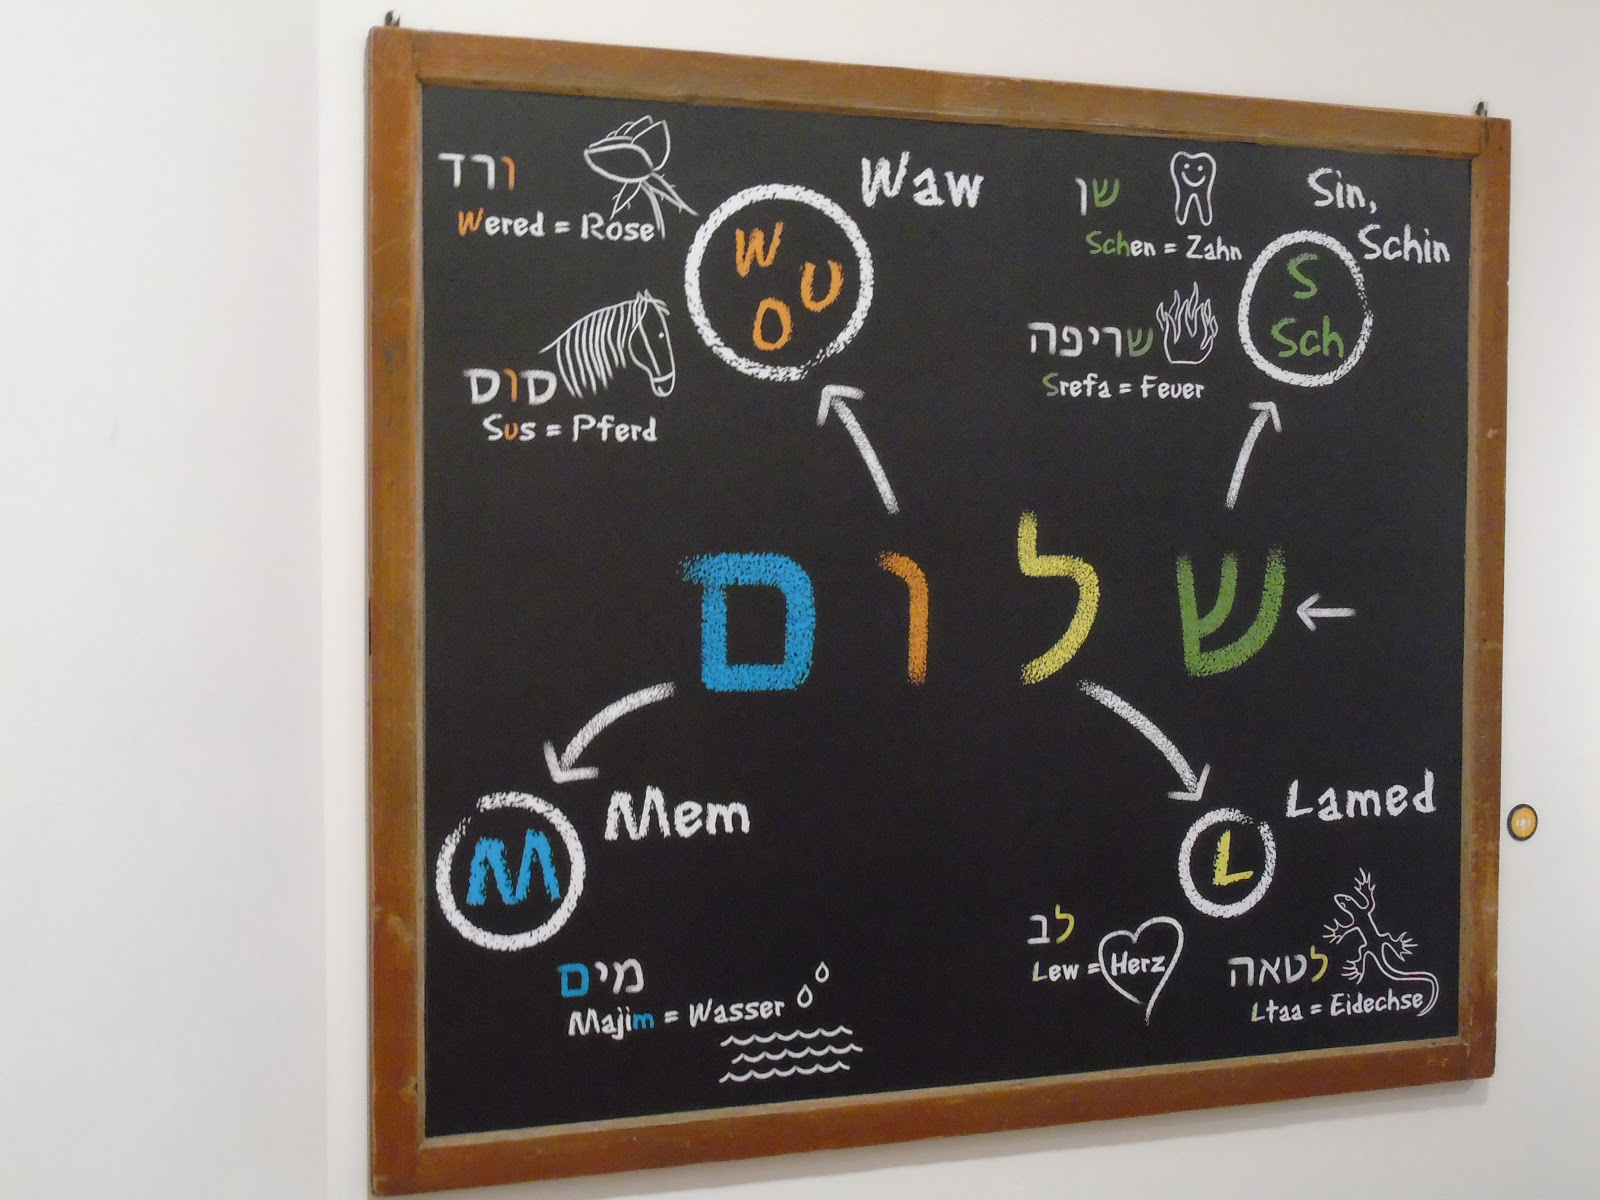 ורד
Wered = Rose
סוס
Sus = Pferd
Waw
W
U
O
שן
Schen = Zahn
שריפה
Srefa = Feuer
Sin,
Schin
S
Sch
שלום
M
Mem
מים
Majim = Wasser
L
Lamed
לב
Lew = Herz
לטאה
Ltaa = Eidechse